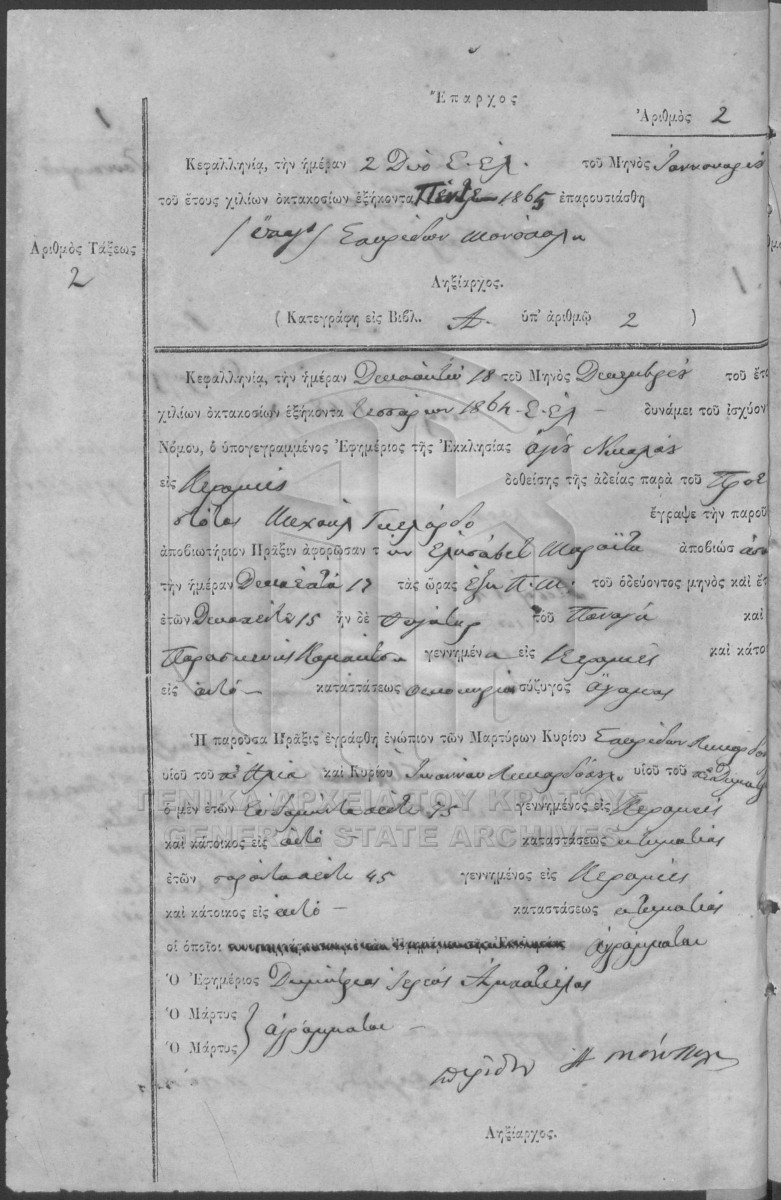 Ἔπαρχος
Ἀριθμὸς 2
Κεφαλληνία, τὴν ἡμέραν 2 Δύο Ε. Ἑλ. τοῦ Μηνὸς Ἰαννουαρίου
τοῦ ἔτους χιλίων ὀκτακοσίων ἑξήκοντα Πέντε 1865 ἐπαρουσιάσθη
Σπυρίδων
Ἀριθμὸς Τάξεως
2
Ληξίαρχος.
( Κατεγράφη εἰς Βιβλ. Α. ὑπ' ἀριθμῷ 2 )
Κεφαλληνία, τὴν ἡμέραν Δεκαοκτώ 18 τοῦ Μηνὸς Δεκεμβρίου τοῦ ἔτο
χιλίων ὀκτακοσίων ἑξήκοντα τεσσάρων 1864. Ε. Ἑλ – δυνάμει τοῦ ἰσχύον
Νόμου, ὁ ὑπογεγραμμένος Ἐφημέριος τῆς Ἐκκλησίας ἁγίου Νικολάου
εἰς Κεραμιές δοθείσης τῆς ἀδείας παρὰ τοῦ Πρωτ
Μιχαήλ ἔγραψε τὴν παροῦ
ἀποβιωτήριον Πρᾶξιν ἀφορῶσαν τ ήν Ἐλισάβετ ἀποβιώσ ασα
τὴν ἡμέραν Δεκαεπτά 17 τὰς ὥρας ἕξη Π. Μ. τοῦ ὁδεύοντος μηνὸς καὶ ἔτ
ἐτῶν Δεκαπέντε 15 ἦν δὲ θυγάτηρ τοῦ Παναγή καὶ
Παρασκευής γεννημένα εἰς Κεραμιές καὶ κάτοι
εἰς αὐτό – καταστάσεως σύζυγος ἄγαμος
Ἡ παροῦσα Πρᾶξις ἐγράφθη ἐνώπιον τῶν Μαρτύρων Κυρίου Σπυρίδων
υἱοῦ τοῦ π. Ἠλία καὶ Κυρίου Ἰωάννου υἱοῦ τοῦ
ὁ μὲν ἐτῶν ἑβδομήντα πέντε 75 γεννημένος εἰς Κεραμιές
καὶ κάτοικος εἰς αὐτό – καταστάσεως κτηματίας
ἐτῶν σαράντα πέντε 45 γεννημένος εἰς Κεραμιές
καὶ κάτοικος εἰς αὐτό – καταστάσεως κτηματίας
οἱ ὁποῖοι ἀγράμματοι
Ὁ Ἐφημέριος Δημήτριος ἱερεύς
Ὁ Μάρτυς
Ὁ Μάρτυς } ἀγράμματοι –
Ληξίαρχος.
ΓΕΝΙΚΑ ΑΡΧΕΙΑ ΤΟΥ ΚΡΑΤΟΥΣ
GENERAL STATE ARCHIVES